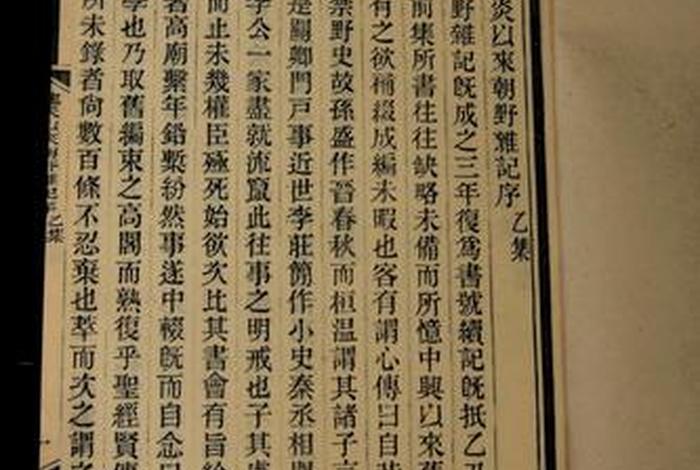 炎以來朝野雜記序 乙集
野雜記既成之三年復爲書號續記既抵乙丑
前集所書往往缺略未備而所憶中興以來舊
有之欲補綴成編未暇也客有謂心傳曰自昔
禁野史故孫盛作晉春秋而桓温謂其諸子言
是關卿門戸事近世李莊簡作小史秦丞相聞
李公一家盡就流竄此往事之明戒也子其慮
而止未幾權臣殛死始欲次比其書會有旨給
著高廟繫年鉛槧紛然事遂中輟既而自念曰
學也乃取舊編束之高閣而熟復乎聖經賢傳
所未錄者尚數百條不忍棄也萃而次之謂之